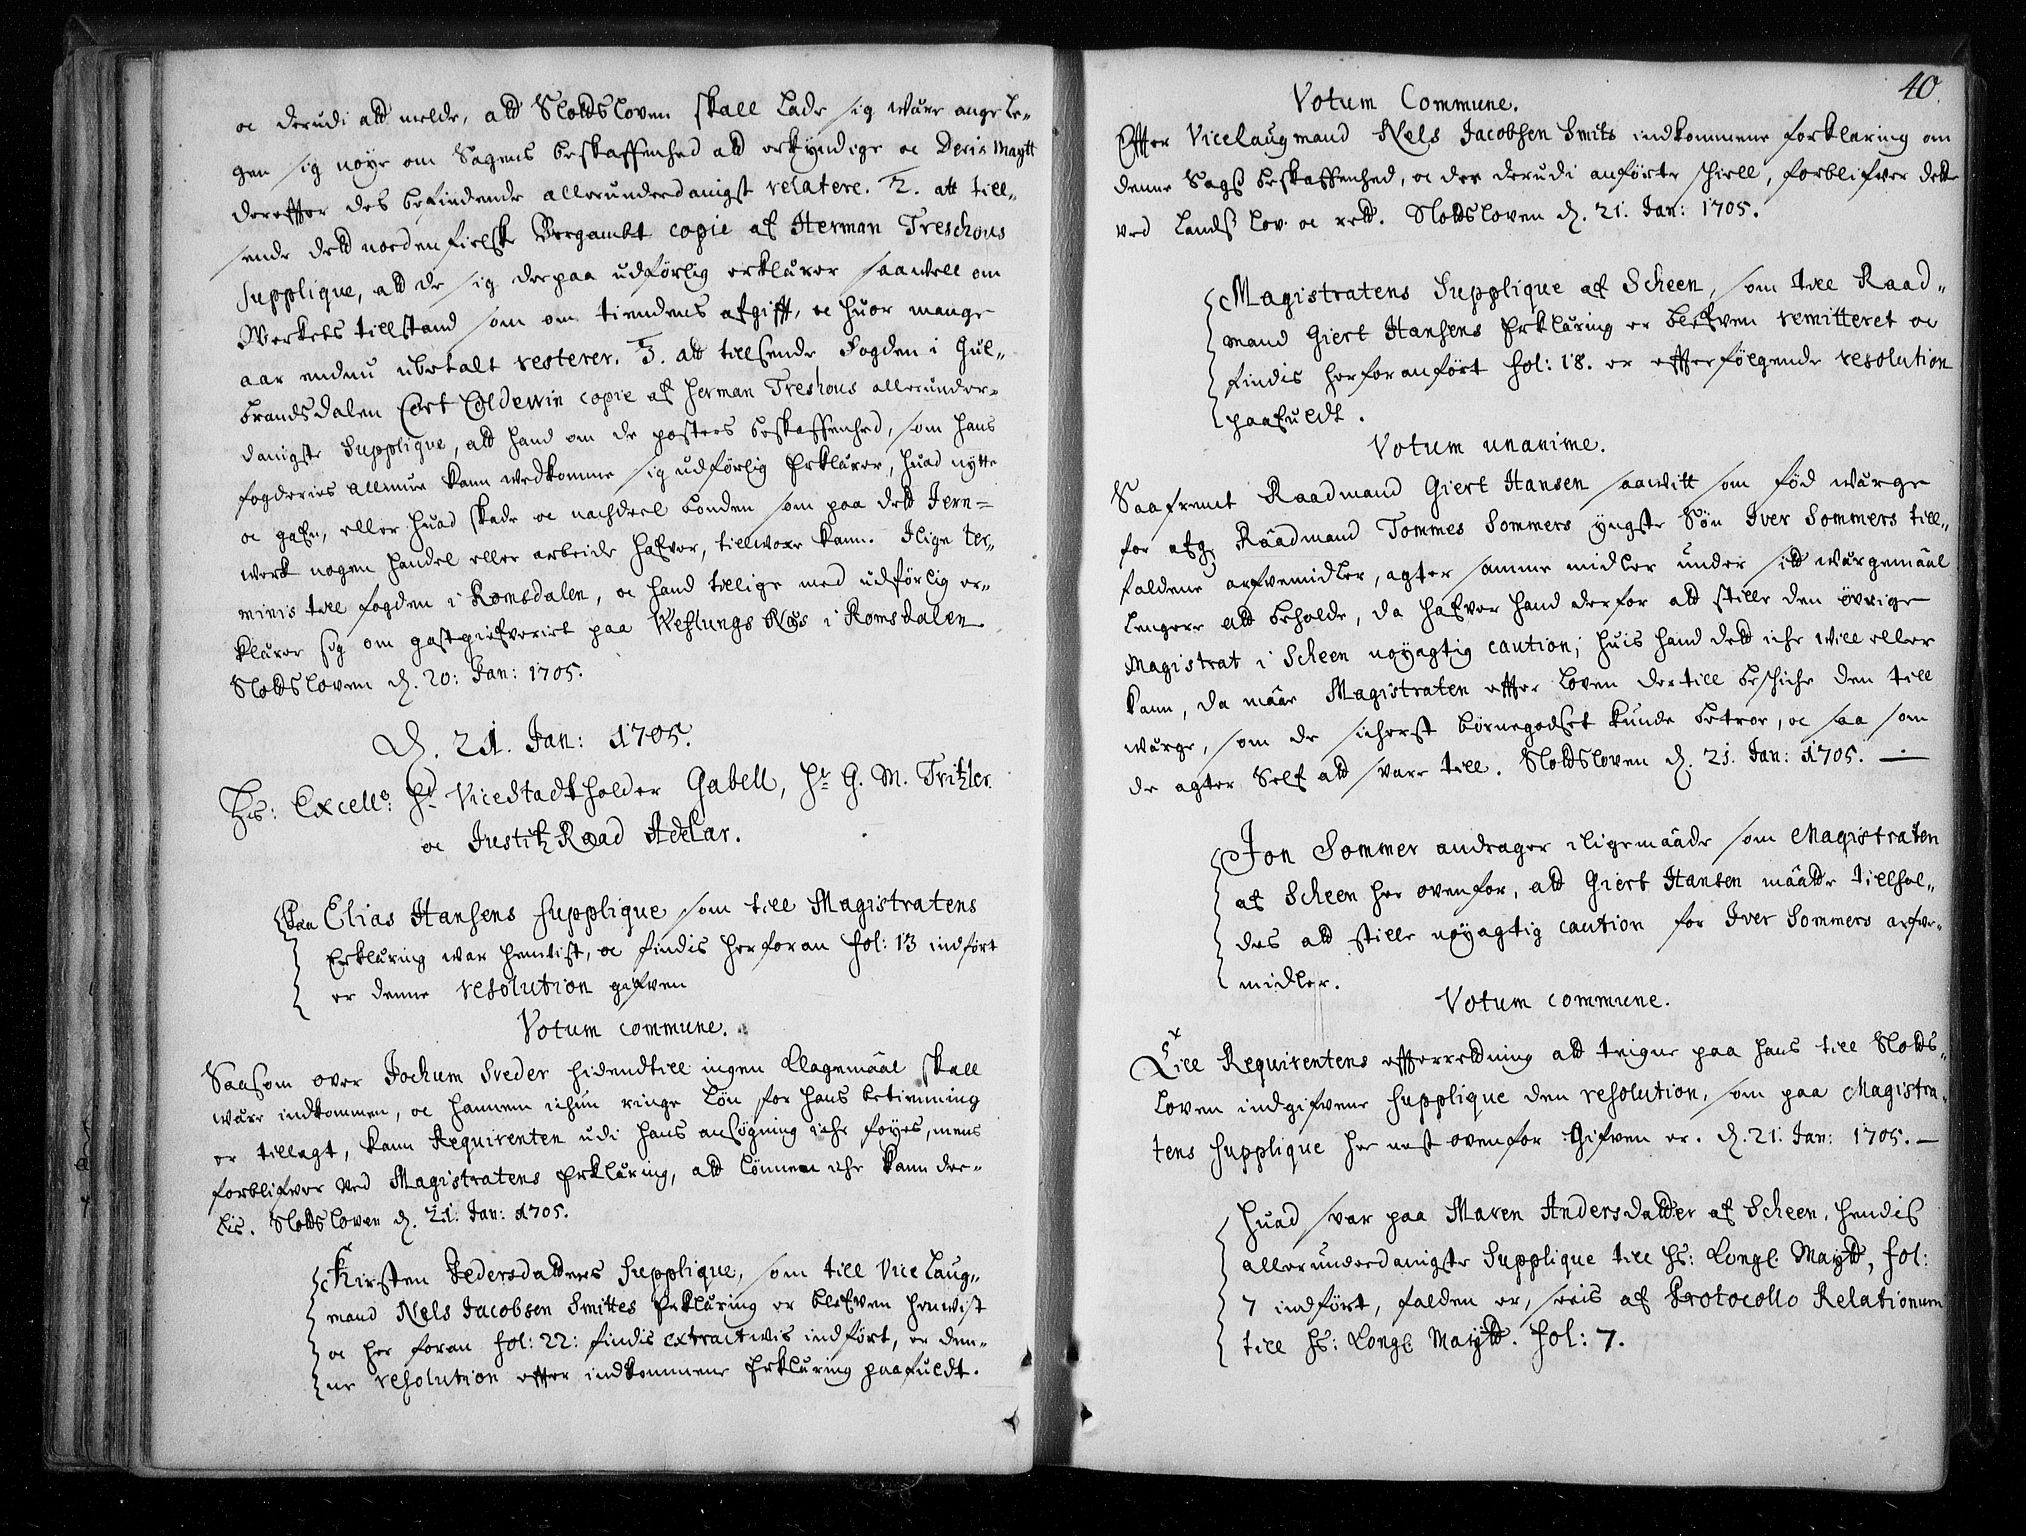 oc derudi att melde, att Slottsloven skall lade sig være angele-
gen sig nøye om Sagens beskaffenhed att erkyndige oc Deris Maytt
derefter des befindende allerunderdanigst relatere. 2. att till-
sende dett nordenfielske Bergambt copie af Herman Treschous
Supplique, att de sig derpaa udførlig erklærer saavell om
Werkets tillstand som om tiendens afgifft, oc huor mange
aar endnu ubetalt resterer. 3. att tillsende Fogden i Gul-
brandsdalen Cort Coldewin copie af Herman Treshous allerunder-
danigste Supplique, att hand om de posters beskaffenhed, som hans
fogderies allmue kann vedkomme sig udførlig Erklærer, huad nytte
oc gafn, eller huad skade oc nachdeel bonden som paa dett Jern-
werk nogen handel eller arbeide hafver, tillvoxe kann. Ilige ter-
minis till fogden i Romsdalen, oc hand tillige med udførlig er-
klærer sig om gastgiefveriet paa Veflungs Næs i Romsdalen
Slottsloven d. 20: Jan: 1705.
D. 21. Jan: 1705.
Hs: Excellce: Hr Vicestadtholder Gabell, Hr G. M. Tritzler.
oc Justitz Raad Adelar.
Paa Elias Hansens supplique som till Magistratens
Erklæring war henvist, oc findis herforan fol: 13 indført
er denne resolution gifven
Votum commune.
Saasom over Jochum Sveder hidendtill ingen Klagemaal skall
være indkommen, oc hannem ichun ringe Løn for hans betienning
er tillagt, kann Requirenten udi hans ansøgning iche føyes, mens
forblifver ved Magistratens Erklæring, att lønnen iche kann dee-
lis. Slottsloven d. 21. Jan: 1705.
Kirsten Pedersdatters Supplique, som till Vice Laug-
mand Nels Jacobsen Smittes Erklæring er blefven henvist
oc her foran fol: 22: findis extractvis indført, er den-
ne resolution efter indkommene Erklæring paafuldt.
40.
Votum Commune.
Efter Vicelaugmand Nels Jacobsen Smits indkommene forklaring om
denne Sags beskaffenhed, oc der derudi anførte schiell, forblifver dette
ved Landss Lov oc rett. Slottsloven d. 21. Jan: 1705.
Magistratens Supplique af Scheen, som till Raad-
mand Giert Hansens Erklæring er blefven remitteret oc
findis herforanført fol: 18. er efterfølgende resolution
paafuldt.
Votum unanime.
Saafremt Raadmand Giert Hansen saavitt som fød wærge
for afg. Raadmand Tommes Sommers yngste Søn Iver Sommers till-
faldene arfvemidler, agter samme midler under sitt wærgemaal
lengere att beholde, da hafver hand derfor att stille den øvrige
Magistrat i Scheen nøyagtig caution; huis hand dett iche will eller
kann, da maae Magistraten efter Loven dertill beschiche den till
wærge, som de sicherst børnegodset kunde betroe, oc saa som
de agter Self att svare till. Slottsloven d. 21. Jan: 1705.
Jon Sommer andrager iligemaade som Magistraten
af Scheen her ovenfor, att Giert Hansen maatte tillhol-
des att stille nøyagtig caution for Iver Sommers arfve-
midler.
Votum commune.
Till Requirentens efterretdning att teigne paa hans till Slotts-
loven indgifvene supplique den resolution, som paa Magistra-
tens supplique her nest ovenfor Gifven er. d. 21. Jan: 1705.
Huad svar paa Maren Andersdatter af Scheen, hendis
allerunderdanigste Supplique till Hs: Kongl: Maytt, fol:
7 indført, falden er, seeis af Protocollo Relationum
till Hs: Kongl Maytt. fol: 7.